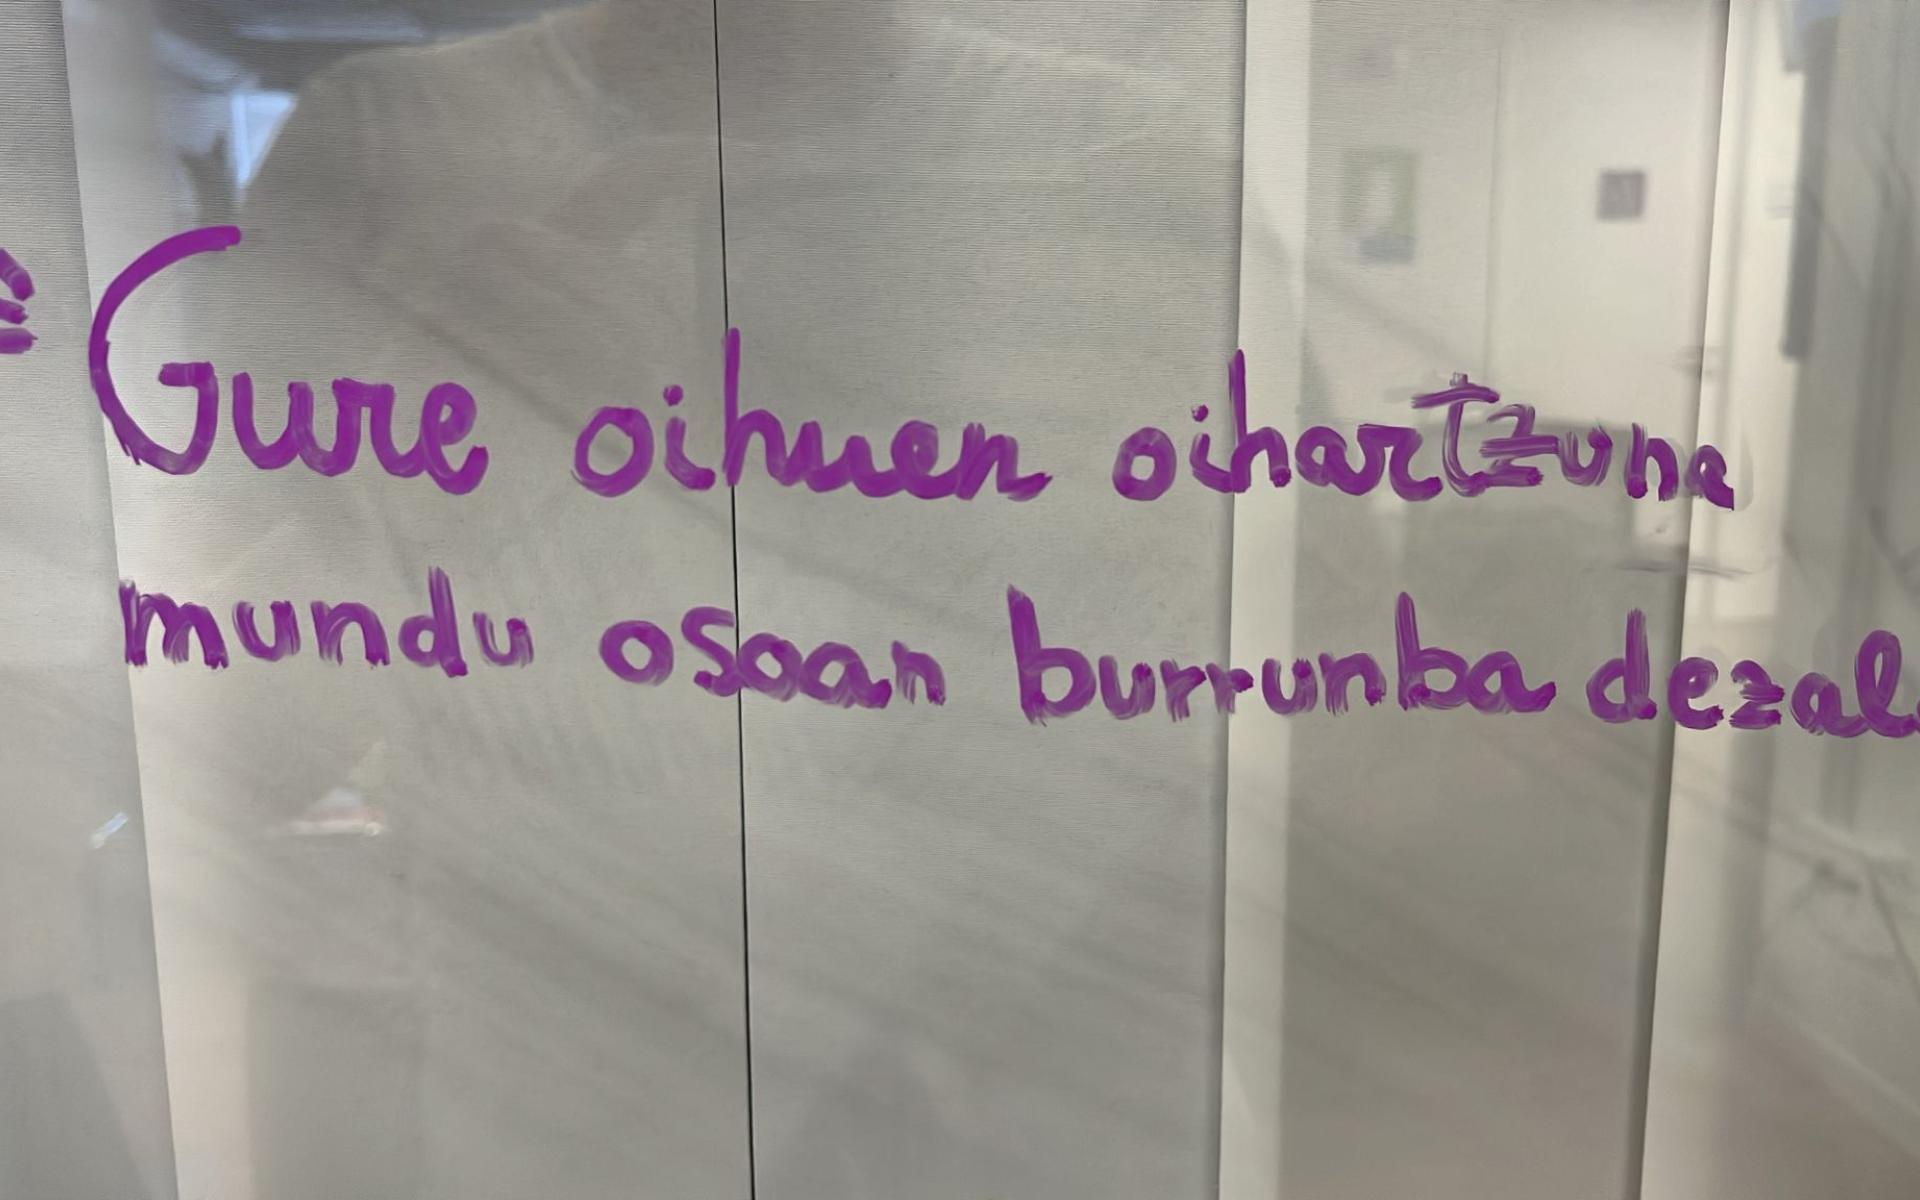 Gure oihuen oihartzuna
mundu osoan burrunba dezal